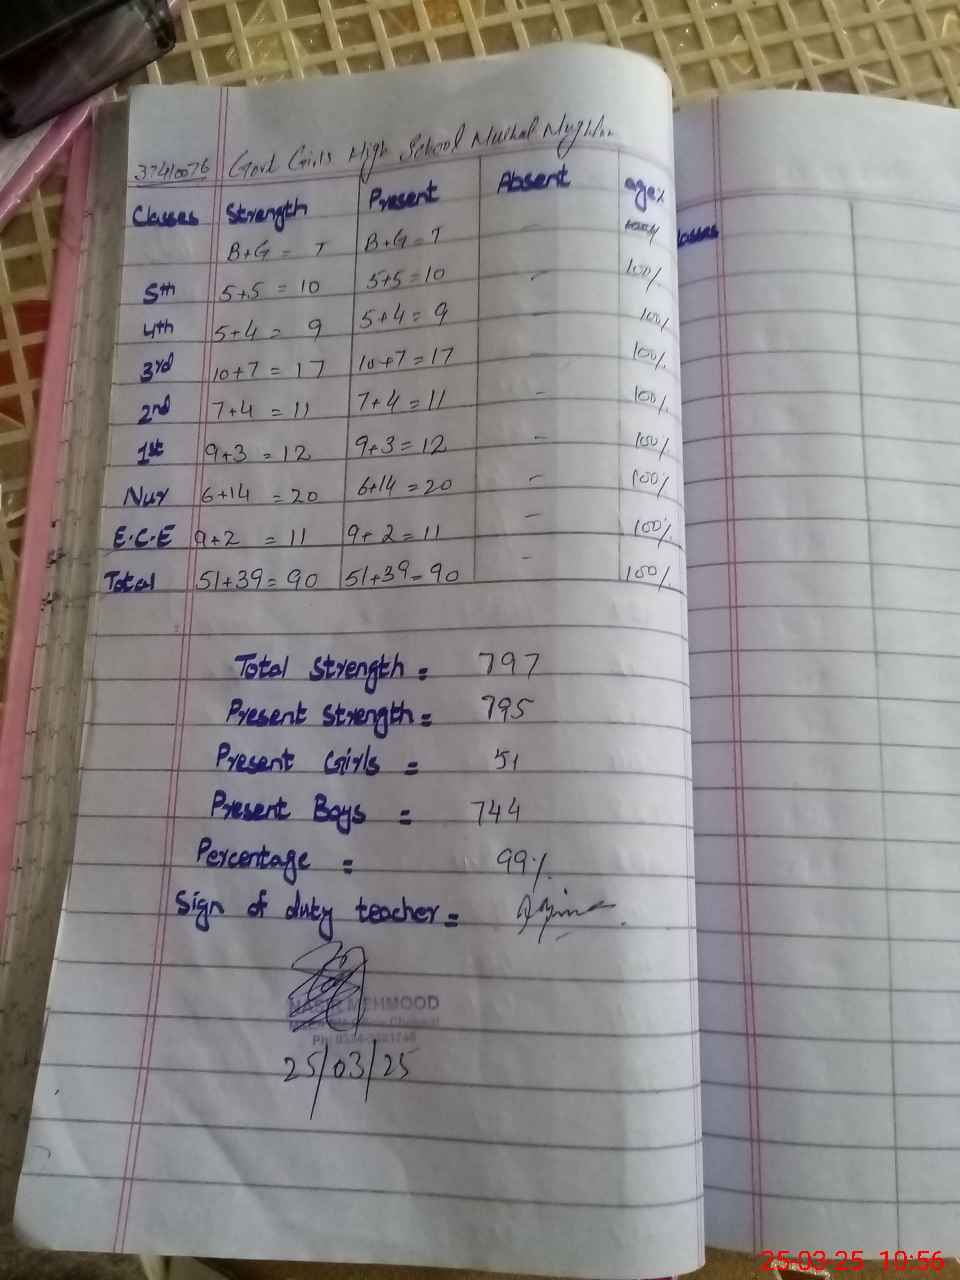 37410076 Govt Girls High School
Classes Strength Present Absent age%
B+G = T B+G = T -
5th 5+5 = 10 5+5 = 10 - 100%
4th 5+4 = 9 5+4 = 9 - 100%
3rd 10+7 = 17 10+7 = 17 - 100%
2nd 7+4 = 11 7+4 = 11 - 100%
1st 9+3 = 12 9+3 = 12 - 100%
Nur 6+14 = 20 6+14 = 20 - 100%
E.C.E 9+2 = 11 9+2 = 11 - 100%
Total 51+39 = 90 51+39 = 90 - 100%
Total Strength = 797
Present Strength = 795
Present Girls = 51
Present Boys = 744
Percentage = 99%
Sign of duty teacher =
MEHMOOD
25/03/25
lasses
25-03-25 10:56